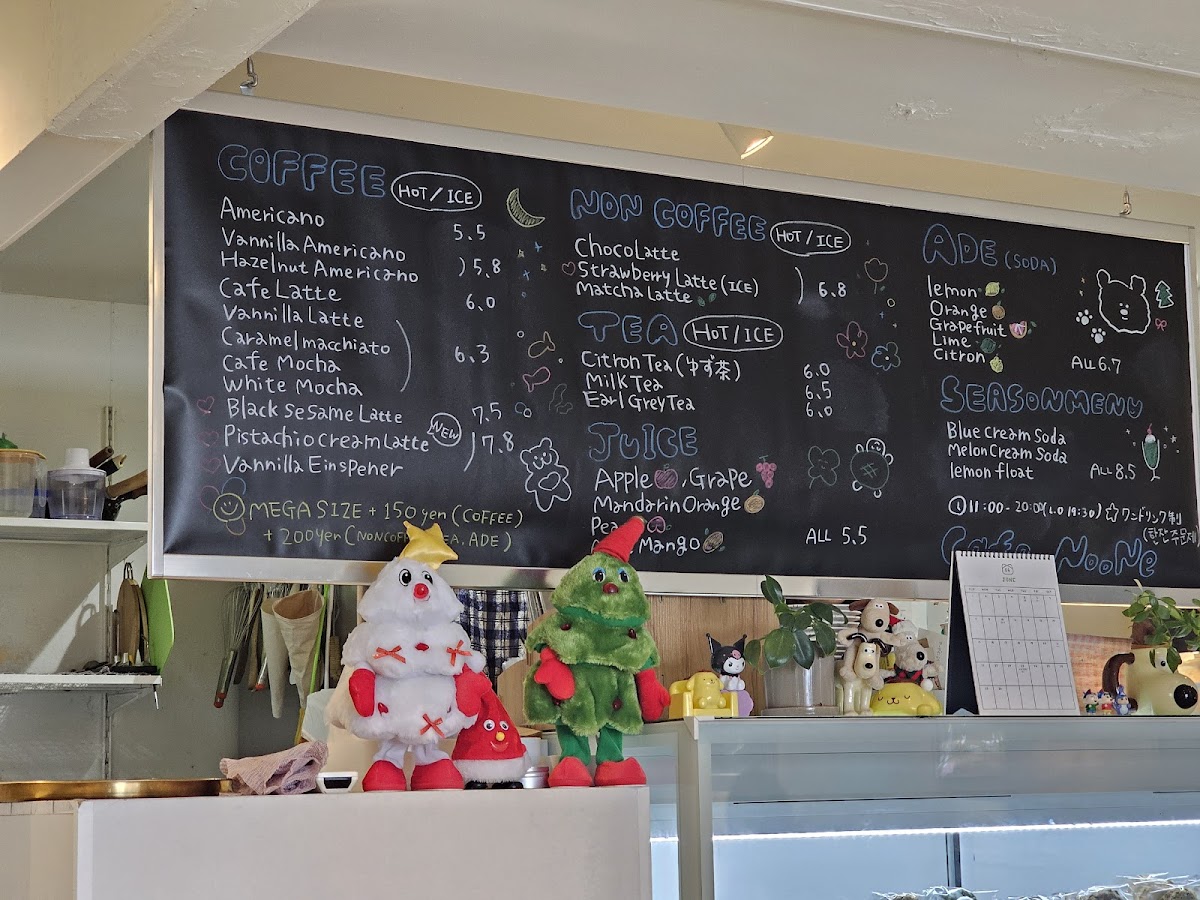 COFFEE HOT/ICE
Americano 5.5
Vannilla Americano
Hazelnut Americano ) 5.8
Cafe Latte 6.0
Vannilla Latte
Caramel macchiato
Cafe Mocha ) 6.3
White Mocha
Black sesame Latte 7.5
Pistachio cream Latte NEW
Vannilla Einspener ) 7.8
MEGA SIZE + 150 yen (COFFEE)
+ 200 yen (NON COFFEE, TEA, ADE)
NON COFFEE HOT/ICE
Chocolatte
Strawberry Latte (ICE) ) 6.8
Matcha Latte
TEA HOT/ICE
Citron Tea (ゆず茶) 6.0
Milk Tea 6.5
Earl Grey Tea 6.0
JUICE
Apple, Grape
Mandarin Orange
Mango ALL 5.5
ADE (SODA)
lemon
Orange
Grapefruit
Lime
Citron ALL 6.7
SEASON MENU
Blue cream Soda
Melon Cream Soda
lemon float ALL 8.5
11:00 - 20:00 (L.O 19:30) ☆ワンドリンク制
Cafe NooNe